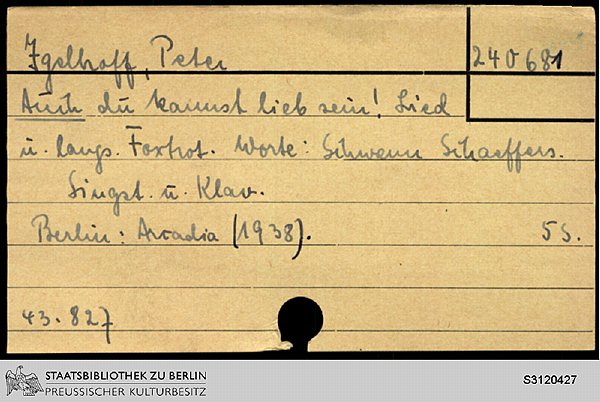 Igelhoff, Peter
240681
Auch du kannst lieb sein! Lied
u. langs. Foxtrot. Worte: Schwenn Schaeffers.
Singst. u. Klav.
Berlin: Arcadia (1938). 5 S.
43.827
STAATSBIBLIOTHEK ZU BERLIN
PREUSSISCHER KULTURBESITZ
S3120427